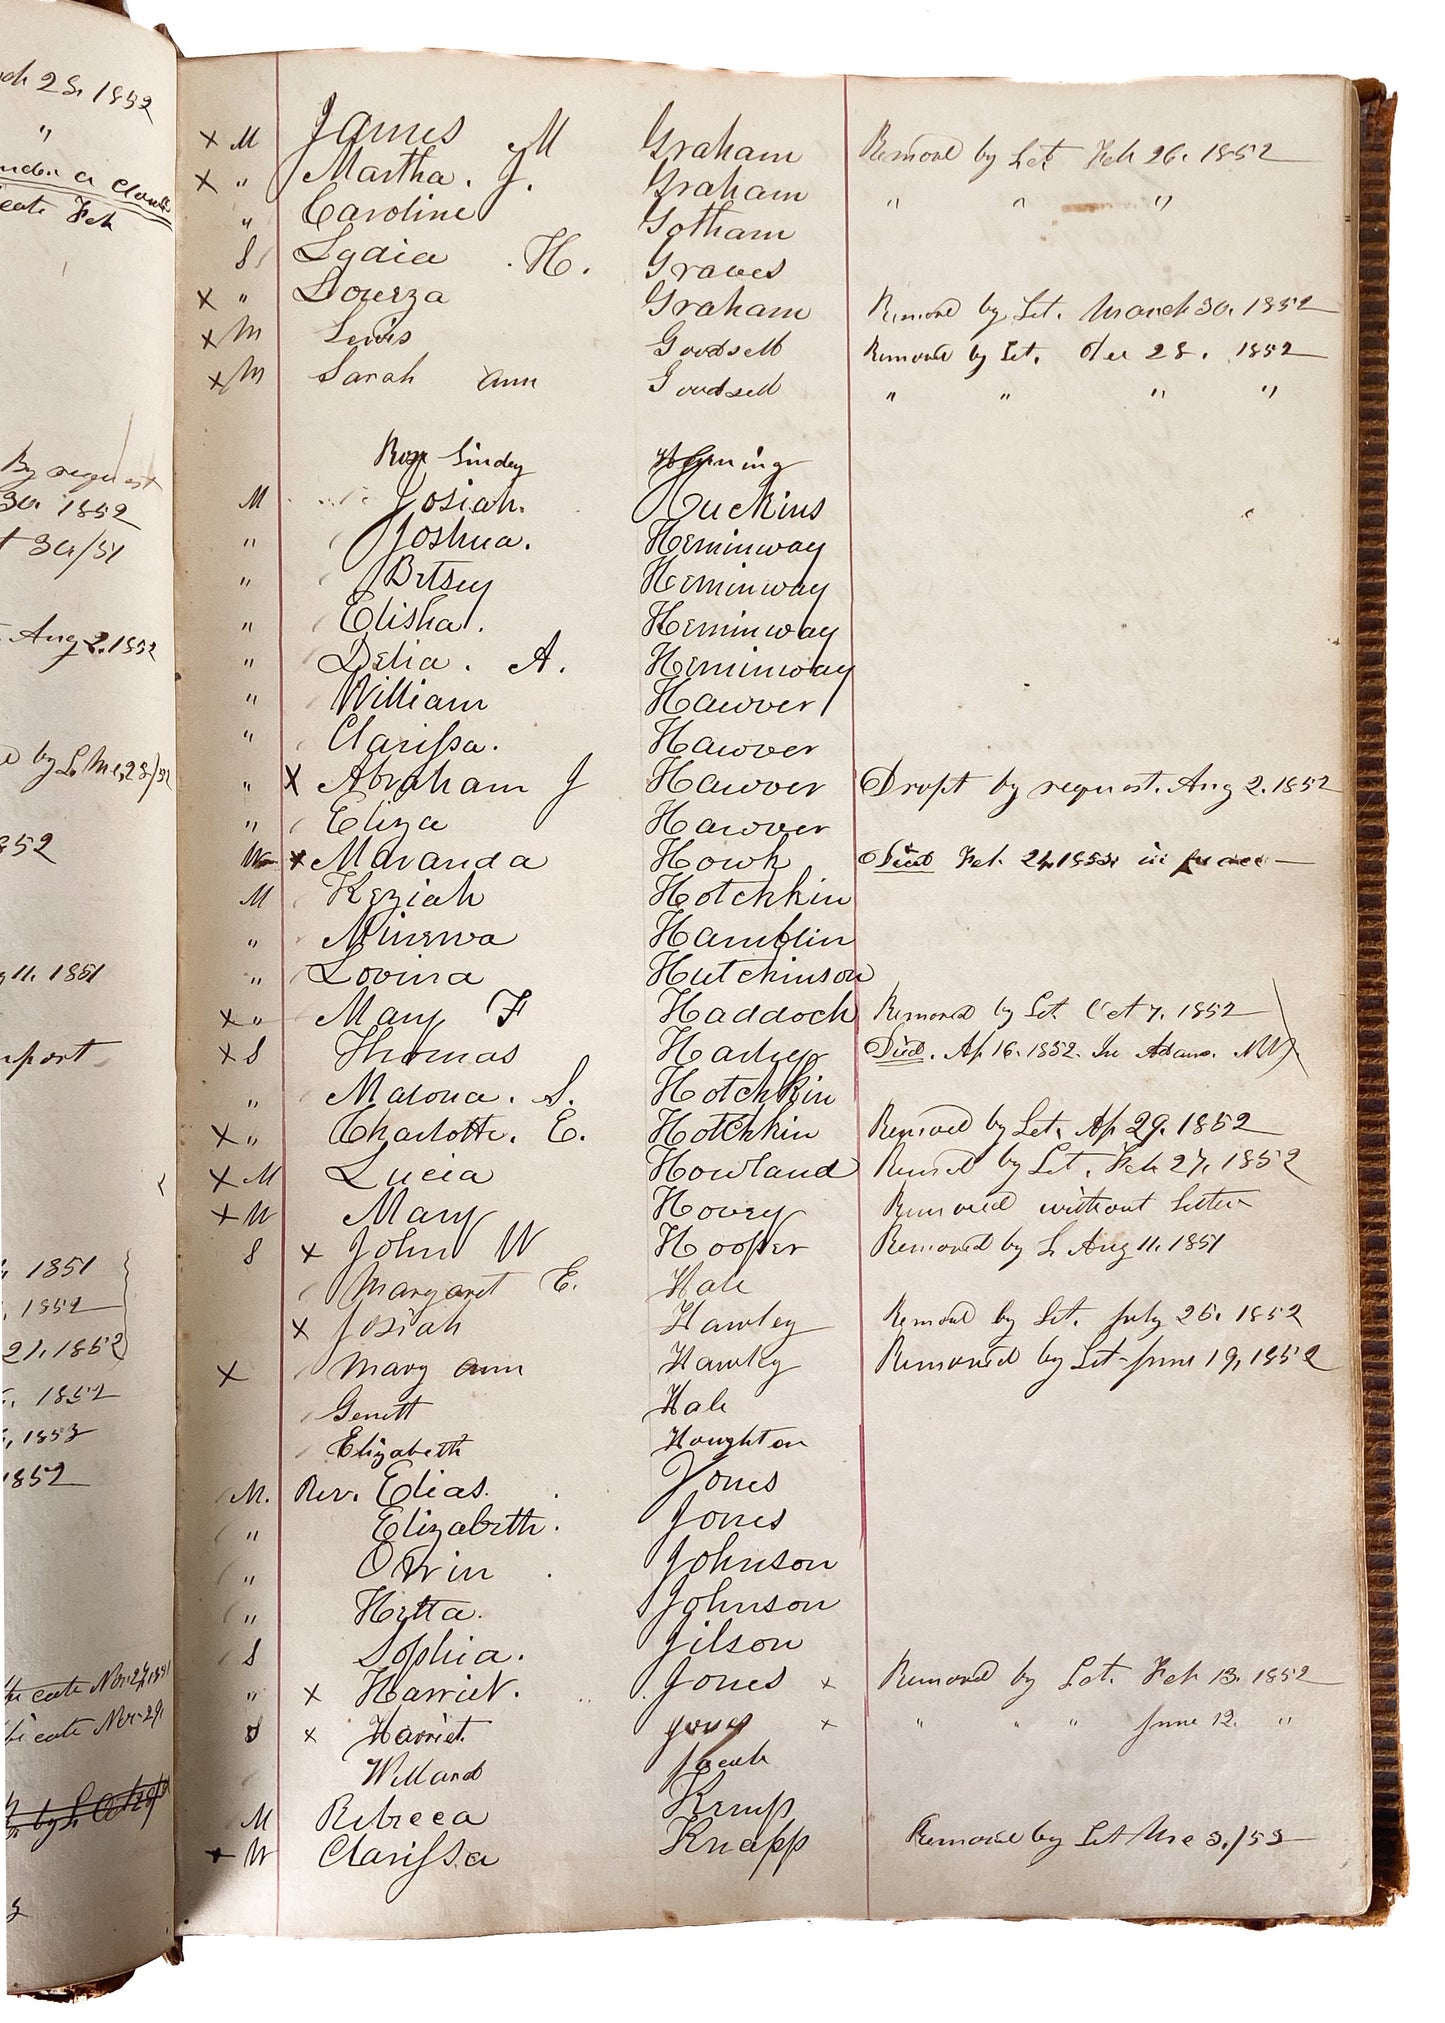 ch 28, 1852
"
eate Feb
By request
30. 1852
t 30/51
Aug 2. 1852
by L.
852
11. 1851
1851
1852
21. 1852
1852
1853
1852
eate Nov 27, 1851
ficate Nov 29.
by L. Oct 28
× M James M Graham Removd by Let Feb 26. 1852
× " Martha. J. Graham " " "
" Caroline Gotham
S Lydia . H. Graves
× " Louesza Graham Removd by Let. March 30. 1852
× M Lewis Goodsell Removd by Let. Dec 28. 1852
× M Sarah Ann Goodsell " " " "
M Josiah. Huckins
" Joshua. Heminway
" Betsey Heminway
" Elisha. Heminway
" Delia. A. Heminway
" William Hawver
" Clarissa. Hawver
" × Abraham J Hawver Dropt by request. Aug 2. 1852
" Eliza Hawver
W × Maranda Died Feb in peace
M Keziah Hotchkin
" Minerva Hamblin
" Lovina Hutchinson
× " Mary F Haddock Removed by Let. Oct 7. 1852
× S Thomas Harley Died. Ap 16. 1852. In Adams. NY
" Malona. S. Hotchkin
× " Charlotte. E. Hotchkin Removed by Let. Ap 29. 1852
× M Lucia Howland Removd by Let. Feb 27. 1852
× W Mary Hovey Removed without Letter
S × John W Hooper Removed by L. Aug 11. 1851
Margaret E. Hale
× Josiah Hawley Removd by Let. July 25. 1852
× Mary Ann Hawley Removed by Let June 19, 1852
Genett Hale
Elizabeth Houghton
M. Rev. Elias. Jones
" Elizabeth. Jones
" Orrin Johnson
" Hetta. Johnson
S Sophia. Jilson
" × Harriet. Jones × Removd by Let. Feb 13. 1852
S × Harriet. Jones × " " " June 12. "
Willard Jacob
M Rebecca Kemp
× W Clarissa Knapp Removed by Let 3./53